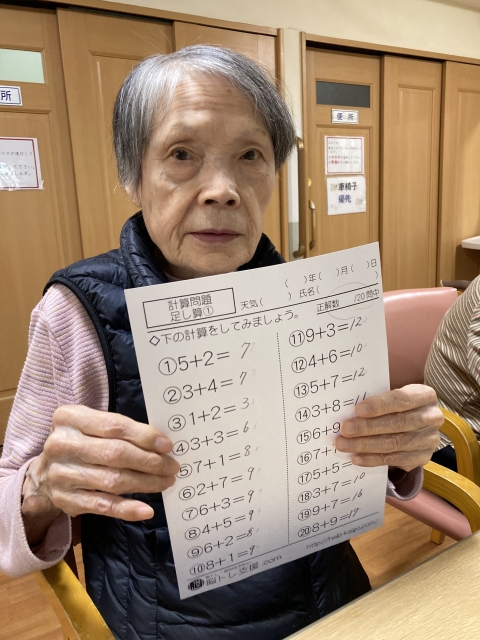 所
便所
車椅子
優先
計算問題
足し算①
( )年( )月( )日
天気( ) 氏名( )
正解数 /20問中
◇下の計算をしてみましょう。
①5+2= 7
②3+4= 7
③1+2= 3
④3+3= 6
⑤7+1= 8
⑥2+7= 9
⑦6+3= 9
⑧4+5= 9
⑨6+2= 8
⑩8+1= 9
⑪9+3= 12
⑫4+6= 10
⑬5+7= 12
⑭3+8= 11
⑮6+9
⑯7+
⑰5+5=
⑱3+7= 10
⑲9+7= 16
⑳8+9= 17
脳トレ支援.com